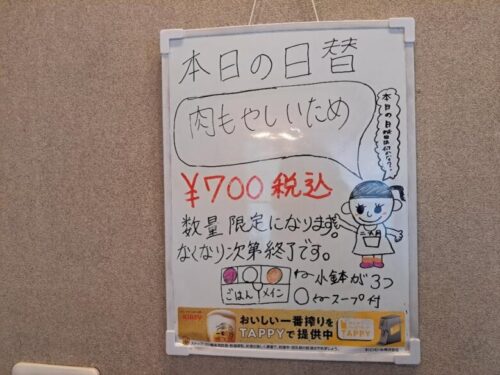 本日の日替
肉もやしいため
¥700税込
数量限定になります。
なくなり次第終了です。
小鉢が3つ
ごはん メイン
スープ付
KIRIN
おいしい一番搾りを
TAPPYで提供中
TAPPY